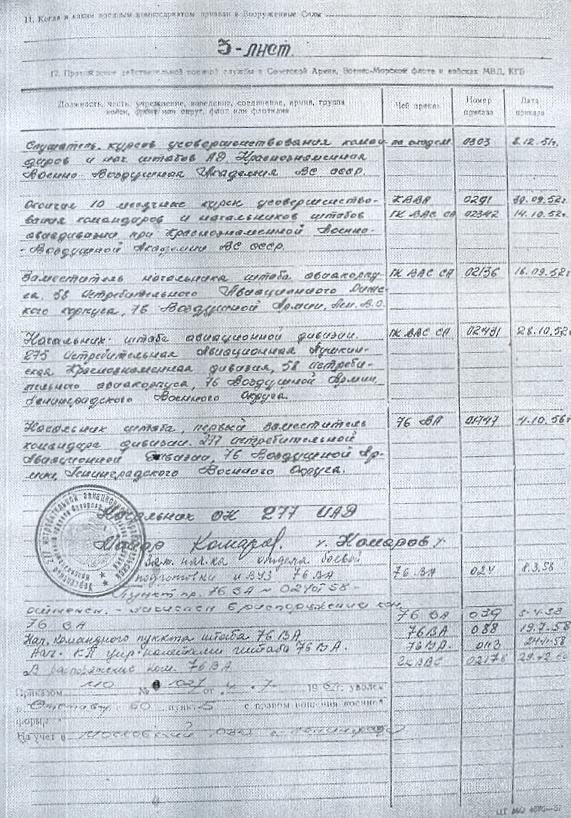 11. Когда и каким военным комиссариатом призван в Вооруженные Силы
3-лист
12. Прохождение действительной военной службы в Советской Армии, Военно-Морском флоте и войсках МВД, КГБ
Должность, часть, учреждение, заведение, соединение, армия, группа войск, фронт или округ, флот или флотилия
Чей приказ
Номер приказа
Дата приказа
Слушатель курсов усовершенствования коман-
диров и нач. штабов АД, Краснознаменная
Военно Воздушная Академия ВС СССР.
0303 8.12.51г.
Окончил 10 месячные курсы усовершенство-
вания командиров и начальников штабов
авиадивизии при Краснознаменной Военно-
-Воздушной Академии ВС СССР.
КВВА 0291 52г.
ГК ВВС СА 02342 14.10.52г.
Заместитель начальника штаба авиакорпу-
са, 58 Истребительного Авиационного
корпуса, 76 Воздушной Армии, Лен. В.О.
ГК ВВС СА 02136 16.09.52г
Начальник штаба авиационной дивизии.
275 Истребительная Авиационная Пушкин-
ская Краснознаменная дивизия, 58 истреби-
тельного авиакорпуса, 76 Воздушной Армии,
Ленинградского Военного Округа.
ГК ВВС СА 02491 28.10.52г
Начальник штаба, первый заместитель
командира дивизии. 277 истребительной
Авиационной Дивизии, 76 Воздушной Ар-
мии, Ленинградского Военного Округа.
76 ВА 01747 4.10.56г
Начальник ОК 277 ИАД
Майор Комаров. Комаров
Зам. нач-ка отдела боевой
подготовки и ВУЗ 76 ВА
76 ВА 024 8.3.58
76 ВА
76 ВА 039 5.4.58
Нач. Командного пункта штаба 76 ВА 76 ВА 088 19.7.58
Нач. КП управления штаба 76 ВА. 76 ВА.
В распоряжение ком. 76 ВА ВВС
Приказом МО № от уволен
с правом ношения военной
формы
На учет в Московский